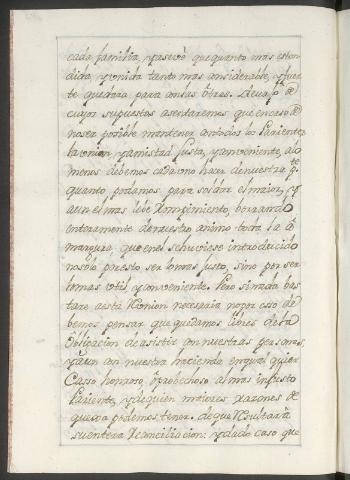 cada familia, ya sevè que quanto mas esten
dida, y vnida tanto mas considerable, y fuer
te quedara para con las otras. Devajo de
cuyos supuestos asentaremos que en caso de
no ser posible mantener con todos los Parientes
la vnion, y amistad justa, y conveniente, a lo
menos debemos cada vno hacer de nuestra pte
quanto podamos para soldar el maior, y
aun el mas lebe Rompimiento, borrando
enteramente de nuestro animo toda la a
margura que en el se huviese introducido
no solo por esto ser lo mas justo, sino por ser
lo mas vtil, y conveniente. Pero si nada bas
tare a esta Vnion necesaria no por eso de
bemos pensar que quedamos libres de la
obligacion de asistir con nuestras personas,
y aun con nuestra hacienda en qual quier
Caso honroso, ò probechoso al mas injusto
Pariente, y de quien maiores razones de
quexa podemos tener. de que Resultarà
su entera Reconciliacion: y dado caso que